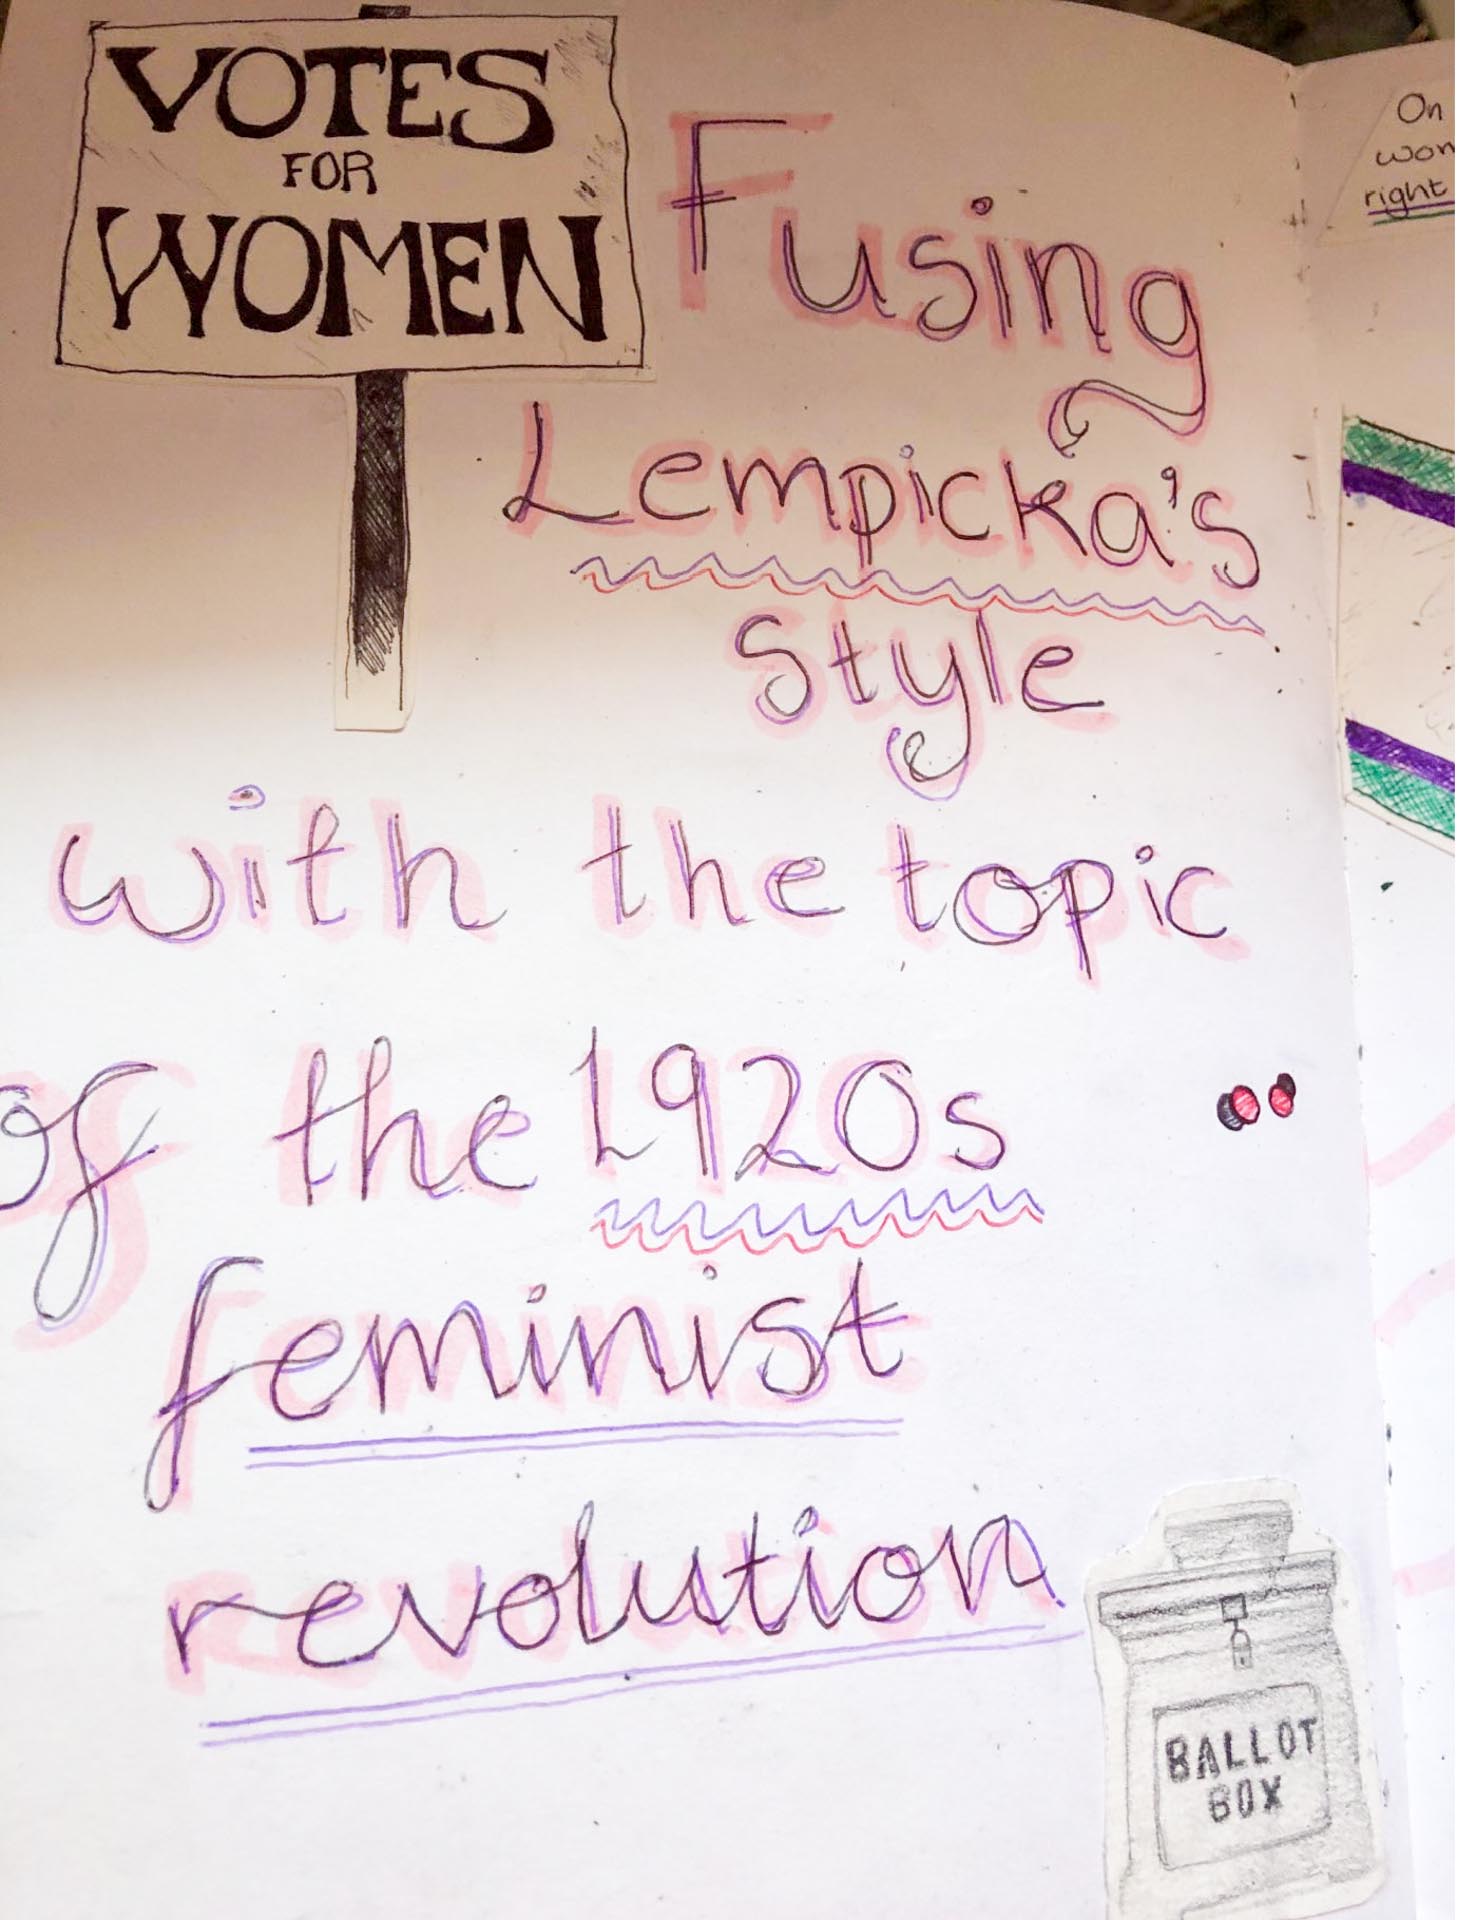 VOTES
FOR
WOMEN
Fusing
Lempicka's
Style
with the topic
of the 1920s
feminist
revolution
BALLOT
BOX
On
right